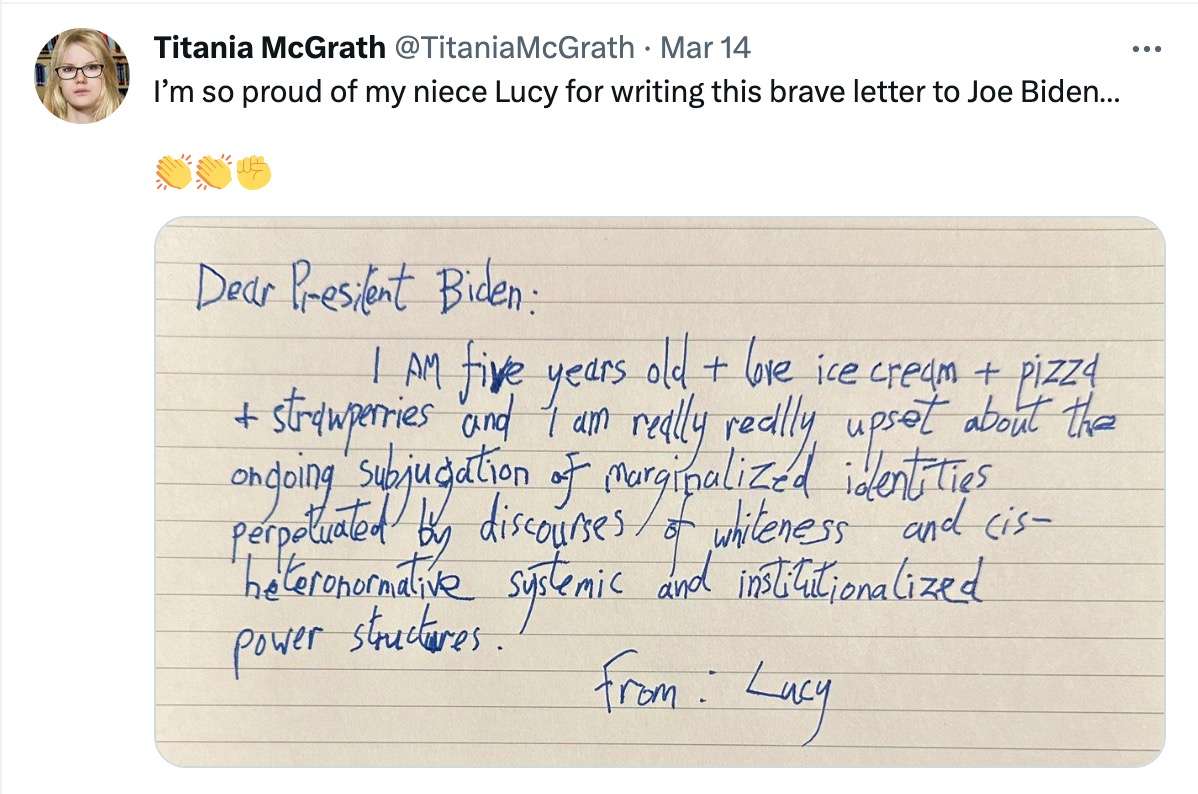 Titania McGrath @TitaniaMcGrath · Mar 14
I’m so proud of my niece Lucy for writing this brave letter to Joe Biden...
👏👏✊
Dear President Biden:
I AM five years old + love ice cream + pizza
+ strawperries and I am really really upset about the
ongoing subjugation of marginalized identities
perpetuated by discourses of whiteness and cis-
heteronormative systemic and institutionalized
power structures.
From: Lucy